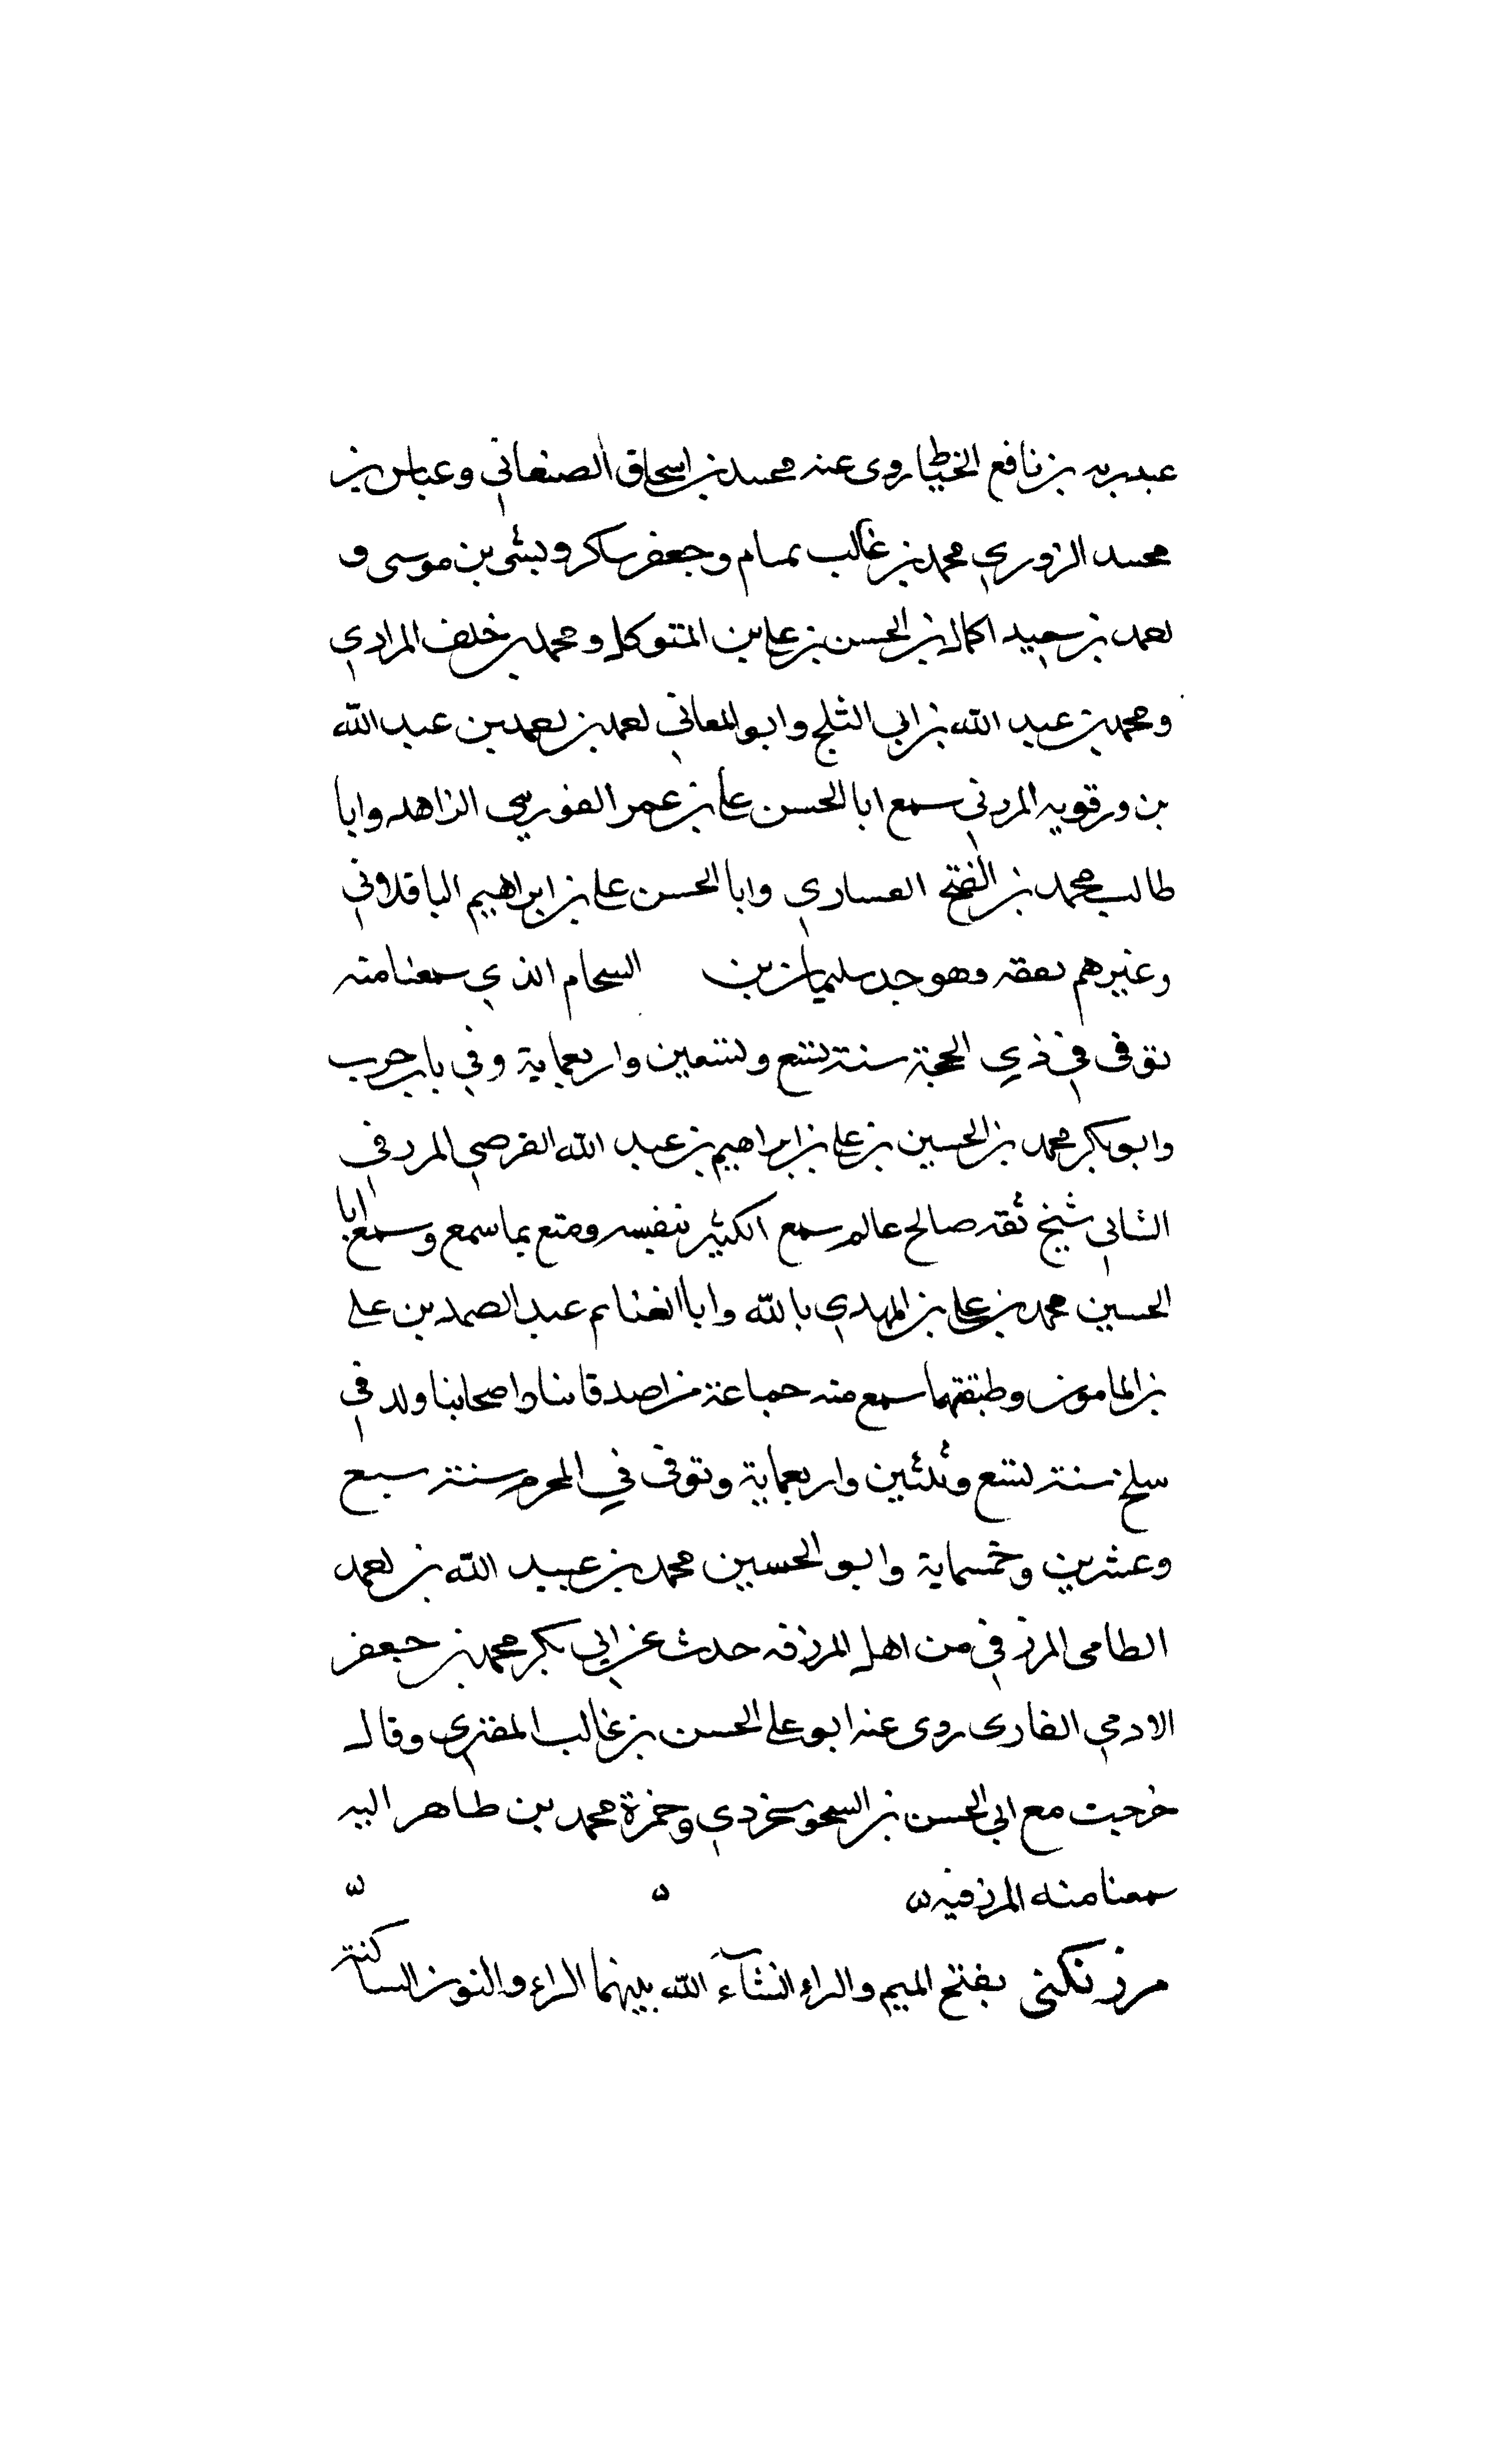 عبدربه بن نافع الخياط روى عنه محمد بن اسحاق الصنعاني وعباس بن
محمد الزوري محمد بن غالب تمام وجعفر شاكر وبشى بن موسى و
احمد بن سعيد الحسن بن علي بن المتوكل ومحمد بن خلف المرادي
ومحمد بن عبد الله بن ابي الثلج وابو المعاني احمد بن احمد بن عبد الله
بن ورقويه المردني سمع ابا الحسن علي بن عمر الفوريي الزاهد وابا
طالب محمد بن الفتح العساري وابا الحسن علي بن ابراهيم الباقلاوني
وغيرهم بفقه وهو جد سليمان بن السحام الذي سمعنا منه
توفى في ذي الحجة سنة تسع وتسعين واربعماية وفي باب حرب
وابو بكر محمد بن الحسين بن علي بن ابراهيم بن عبد الله الفرضي المردفي
الشاني شيخ ثقه صالح عالم سمع الكثير بنفسه ومتع بما سمع وسمع ابا
الحسين محمد بن علي بن المهدي بالله وابا الغنايم عبد الصمد بن علي
بن المامون وطبقتهما سمع منه جماعة من اصدقائنا واصحابنا ولد في
سلخ سنة تسع وثلثين واربعماية وتوفى في المحرم سنة سبع
وعشرين وخمسماية وابو الحسين محمد بن عبيد الله بن احمد
الطامى المرزفي من اهل المرزفه حدث عن ابي بكر محمد بن جعفر
الادمي القارى روى عنه ابو علي الحسن بن غالب المقري وقال
خرجت مع ابي الحسن بن السحوسخردي وحمزة محمد بن طاهر اليه
سمعنا منه المرزفيه ه ه ه
مرزنكنى بفتح الميم والراء انشآء الله بينهما الراء والنون الساكنة